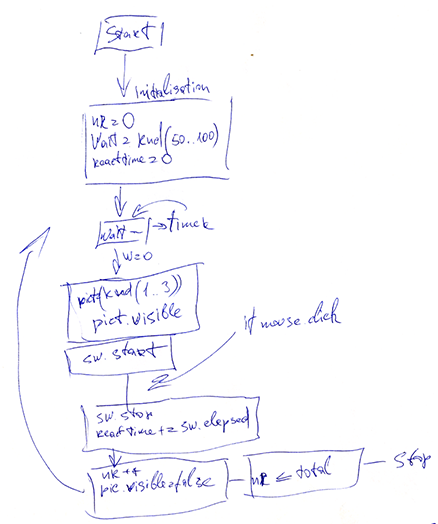 Start
Initialisation
nR = 0
Wait = Rnd(50..100)
React time = 0
wait - 1 → timer
W=0
pict(Rnd(1..3))
pict.visible
sw.start
if mouse.click
sw.stop
React Time += sw.elapsed
nR ++
pic.visible=false
nR ≤ total
Stop